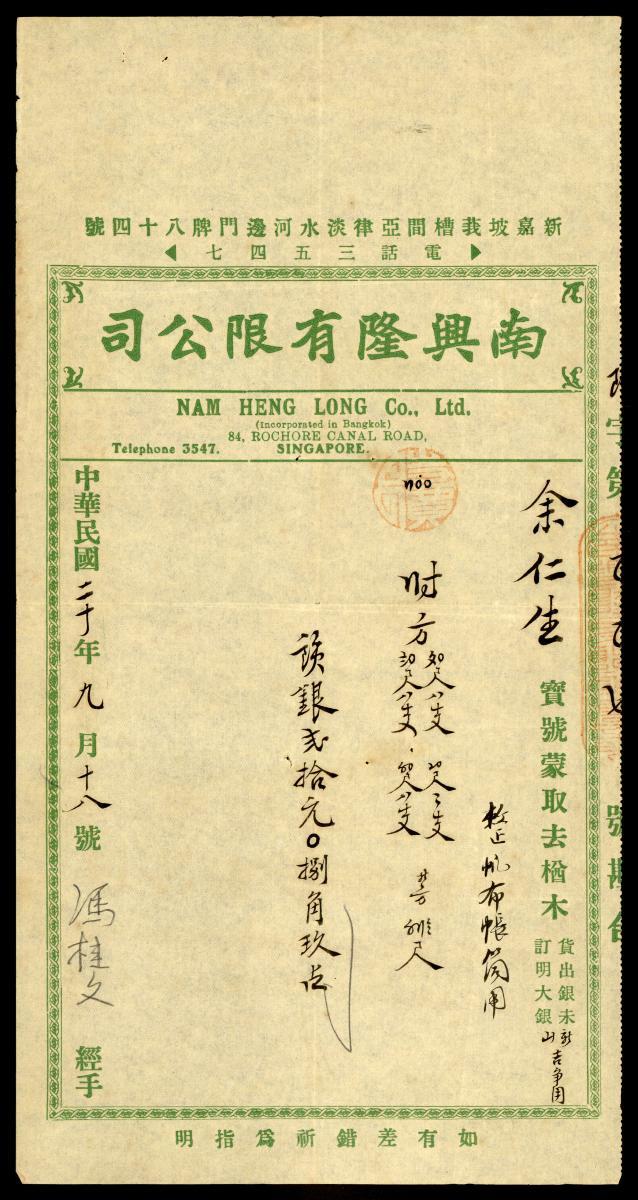 新嘉坡莪槽間亞律淡水河邊門牌八十四號
電話三五四七
南興隆有限公司
NAM HENG LONG Co., Ltd.
(Incorporated in Bangkok)
84, ROCHORE CANAL ROAD,
Telephone 3547. SINGAPORE.
字第
號
余仁生 寶號蒙取去楢木
貨出銀未
訂明大銀
帆布帳筒用
財方
銀弍拾元〇捌角玖占
中華民國二十年九月十八號 馮桂文 經手
如有差錯祈爲指明